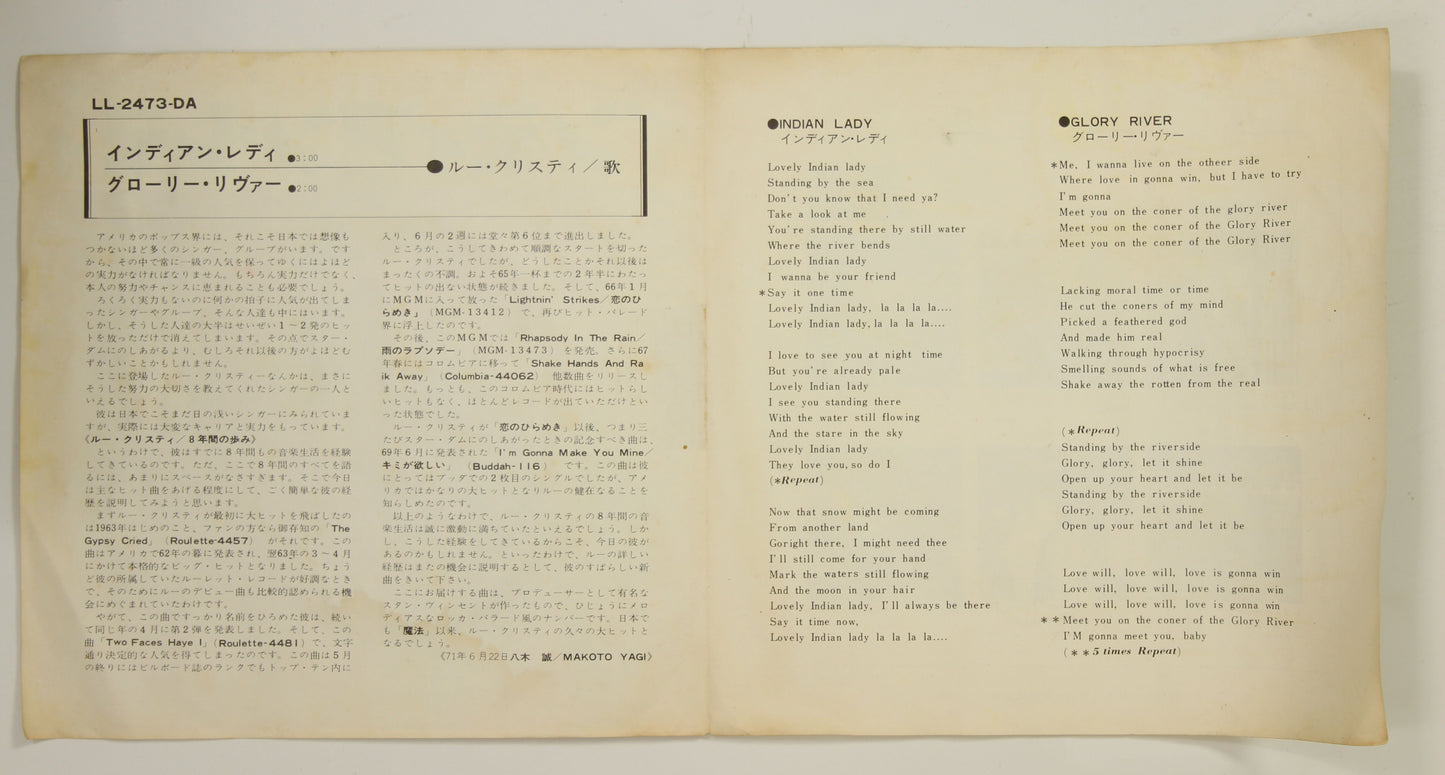 LL-2473-DA
インディアン・レディ ●3:00
グローリー・リヴァー ●2:00
●ルー・クリスティ／歌
アメリカのポップス界には、それこそ日本では想像も
つかないほど多くのシンガー、グループがいます。です
から、その中で常に一級の人気を保ってゆくにはよほど
の実力がなければなりません。もちろん実力だけでなく、
本人の努力やチャンスに恵まれることも必要でしょう。
ろくろく実力もないのに何かの拍子に人気が出てしま
ったシンガーやグループ、そんな人達も中にはいます。
しかし、そうした人達の大半はせいぜい1～2発のヒッ
トを放っただけで消えてしまいます。その点でスター・
ダムにのしあがるより、むしろそれ以後の方がよほどむ
ずかしいことかもしれません。
ここに登場したルー・クリスティーなんかは、まさに
そうした努力の大切さを教えてくれたシンガーの一人と
いえるでしょう。
彼は日本でこそまだ日の浅いシンガーにみられていま
すが、実際には大変なキャリアと実力をもっています。
《ルー・クリスティ／8年間の歩み》
というわけで、彼はすでに8年間もの音楽生活を経験
してきているのです。ただ、ここで8年間のすべてを語
るには、あまりにスペースがなさすぎます。そこで今日
は主なヒット曲をあげる程度にして、ごく簡単な彼の経
歴を説明してみようと思います。
まずルー・クリスティが最初に大ヒットを飛ばしたの
は1963年はじめのこと、ファンの方なら御存知の「The
Gypsy Cried」(Roulette-4457) がそれです。この
曲はアメリカで62年の暮に発表され、翌63年の3～4月
にかけて本格的なビッグ・ヒットとなりました。ちょう
ど彼の所属していたルーレット・レコードが好調なとき
で、そのためにルーのデビュー曲も比較的認められる機
会にめぐまれていたわけです。
やがて、この曲ですっかり名前をひろめた彼は、続い
て同じ年の4月に第2弾を発表しました。そして、この
曲「Two Faces Haye I」(Roulette-4481) で、文字
通り決定的な人気を得てしまったのです。この曲は5月
の終りにはビルボード誌のランクでもトップ・テン内に
入り、6月の2週には堂々第6位まで進出しました。
ところが、こうしてきわめて順調なスタートを切った
ルー・クリスティでしたが、どうしたことかそれ以後は
まったくの不調。およそ65年一杯までの2年半にわたっ
てヒットの出ない状態が続きました。そして、66年1月
にMGMに入って放った「Lightnin' Strikes／恋のひ
らめき」(MGM-13412) で、再びヒット・パレード
界に浮上したのです。
その後、このMGMでは「Rhapsody In The Rain／
雨のラプソデー」(MGM-13473) を発売。さらに67
年春にはコロムビアに移って「Shake Hands And Ra
ik Away」(Columbia-44062) 他数曲をリリースし
ました。もっとも、このコロムビア時代にはヒットらし
いヒットもなく、ほとんどレコードが出ていただけとい
った状態でした。
ルー・クリスティが「恋のひらめき」以後、つまり三
たびスター・ダムにのしあがったときの記念すべき曲は、
69年6月に発表された「I'm Gonna Make You Mine／
キミが欲しい」 (Buddah-116) です。この曲は彼
にとってはブッダでの2枚目のシングルでしたが、アメ
リカではかなりの大ヒットとなりルーの健在なることを
知らしめたのです。
以上のようなわけで、ルー・クリスティの8年間の音
楽生活は誠に激動に満ちていたといえるでしょう。しか
し、こうした経験をしてきているからこそ、今日の彼が
あるのかもしれません。といったわけで、ルーの詳しい
経歴はまたの機会に説明するとして、彼のすばらしい新
曲をきいて下さい。
ここにお届けする曲は、プロデューサーとして有名な
スタン・ヴィンセントが作ったもので、ひじょうにメロ
ディアスなロッカ・バラード風のナンバーです。日本で
も「魔法」以来、ルー・クリスティの久々の大ヒットと
なるでしょう。
《71年6月22日八木 誠／MAKOTO YAGI》
●INDIAN LADY
インディアン・レディ
Lovely Indian lady
Standing by the sea
Don't you know that I need ya?
Take a look at me
You're standing there by still water
Where the river bends
Lovely Indian lady
I wanna be your friend
*Say it one time
Lovely Indian lady, la la la la....
Lovely Indian lady, la la la la....
I love to see you at night time
But you're already pale
Lovely Indian lady
I see you standing there
With the water still flowing
And the stare in the sky
Lovely Indian lady
They love you, so do I
(*Repeat)
Now that snow might be coming
From another land
Goright there, I might need thee
I'll still come for your hand
Mark the waters still flowing
And the moon in your hair
Lovely Indian lady, I'll always be there
Say it time now,
Lovely Indian lady la la la la....
●GLORY RIVER
グローリー・リヴァー
*Me, I wanna live on the otheer side
Where love in gonna win, but I have to try
I'm gonna
Meet you on the coner of the glory river
Meet you on the coner of the Glory River
Meet you on the coner of the Glory River
Lacking moral time or time
He cut the coners of my mind
Picked a feathered god
And made him real
Walking through hypocrisy
Smelling sounds of what is free
Shake away the rotten from the real
(*Repeat)
Standing by the riverside
Glory, glory, let it shine
Open up your heart and let it be
Standing by the riverside
Glory, glory, let it shine
Open up your heart and let it be
Love will, love will, love is gonna win
Love will, love will, love is gonna win
Love will, love will, love is gonna win
**Meet you on the coner of the Glory River
I'M gonna meet you, baby
(**5 times Repeat)